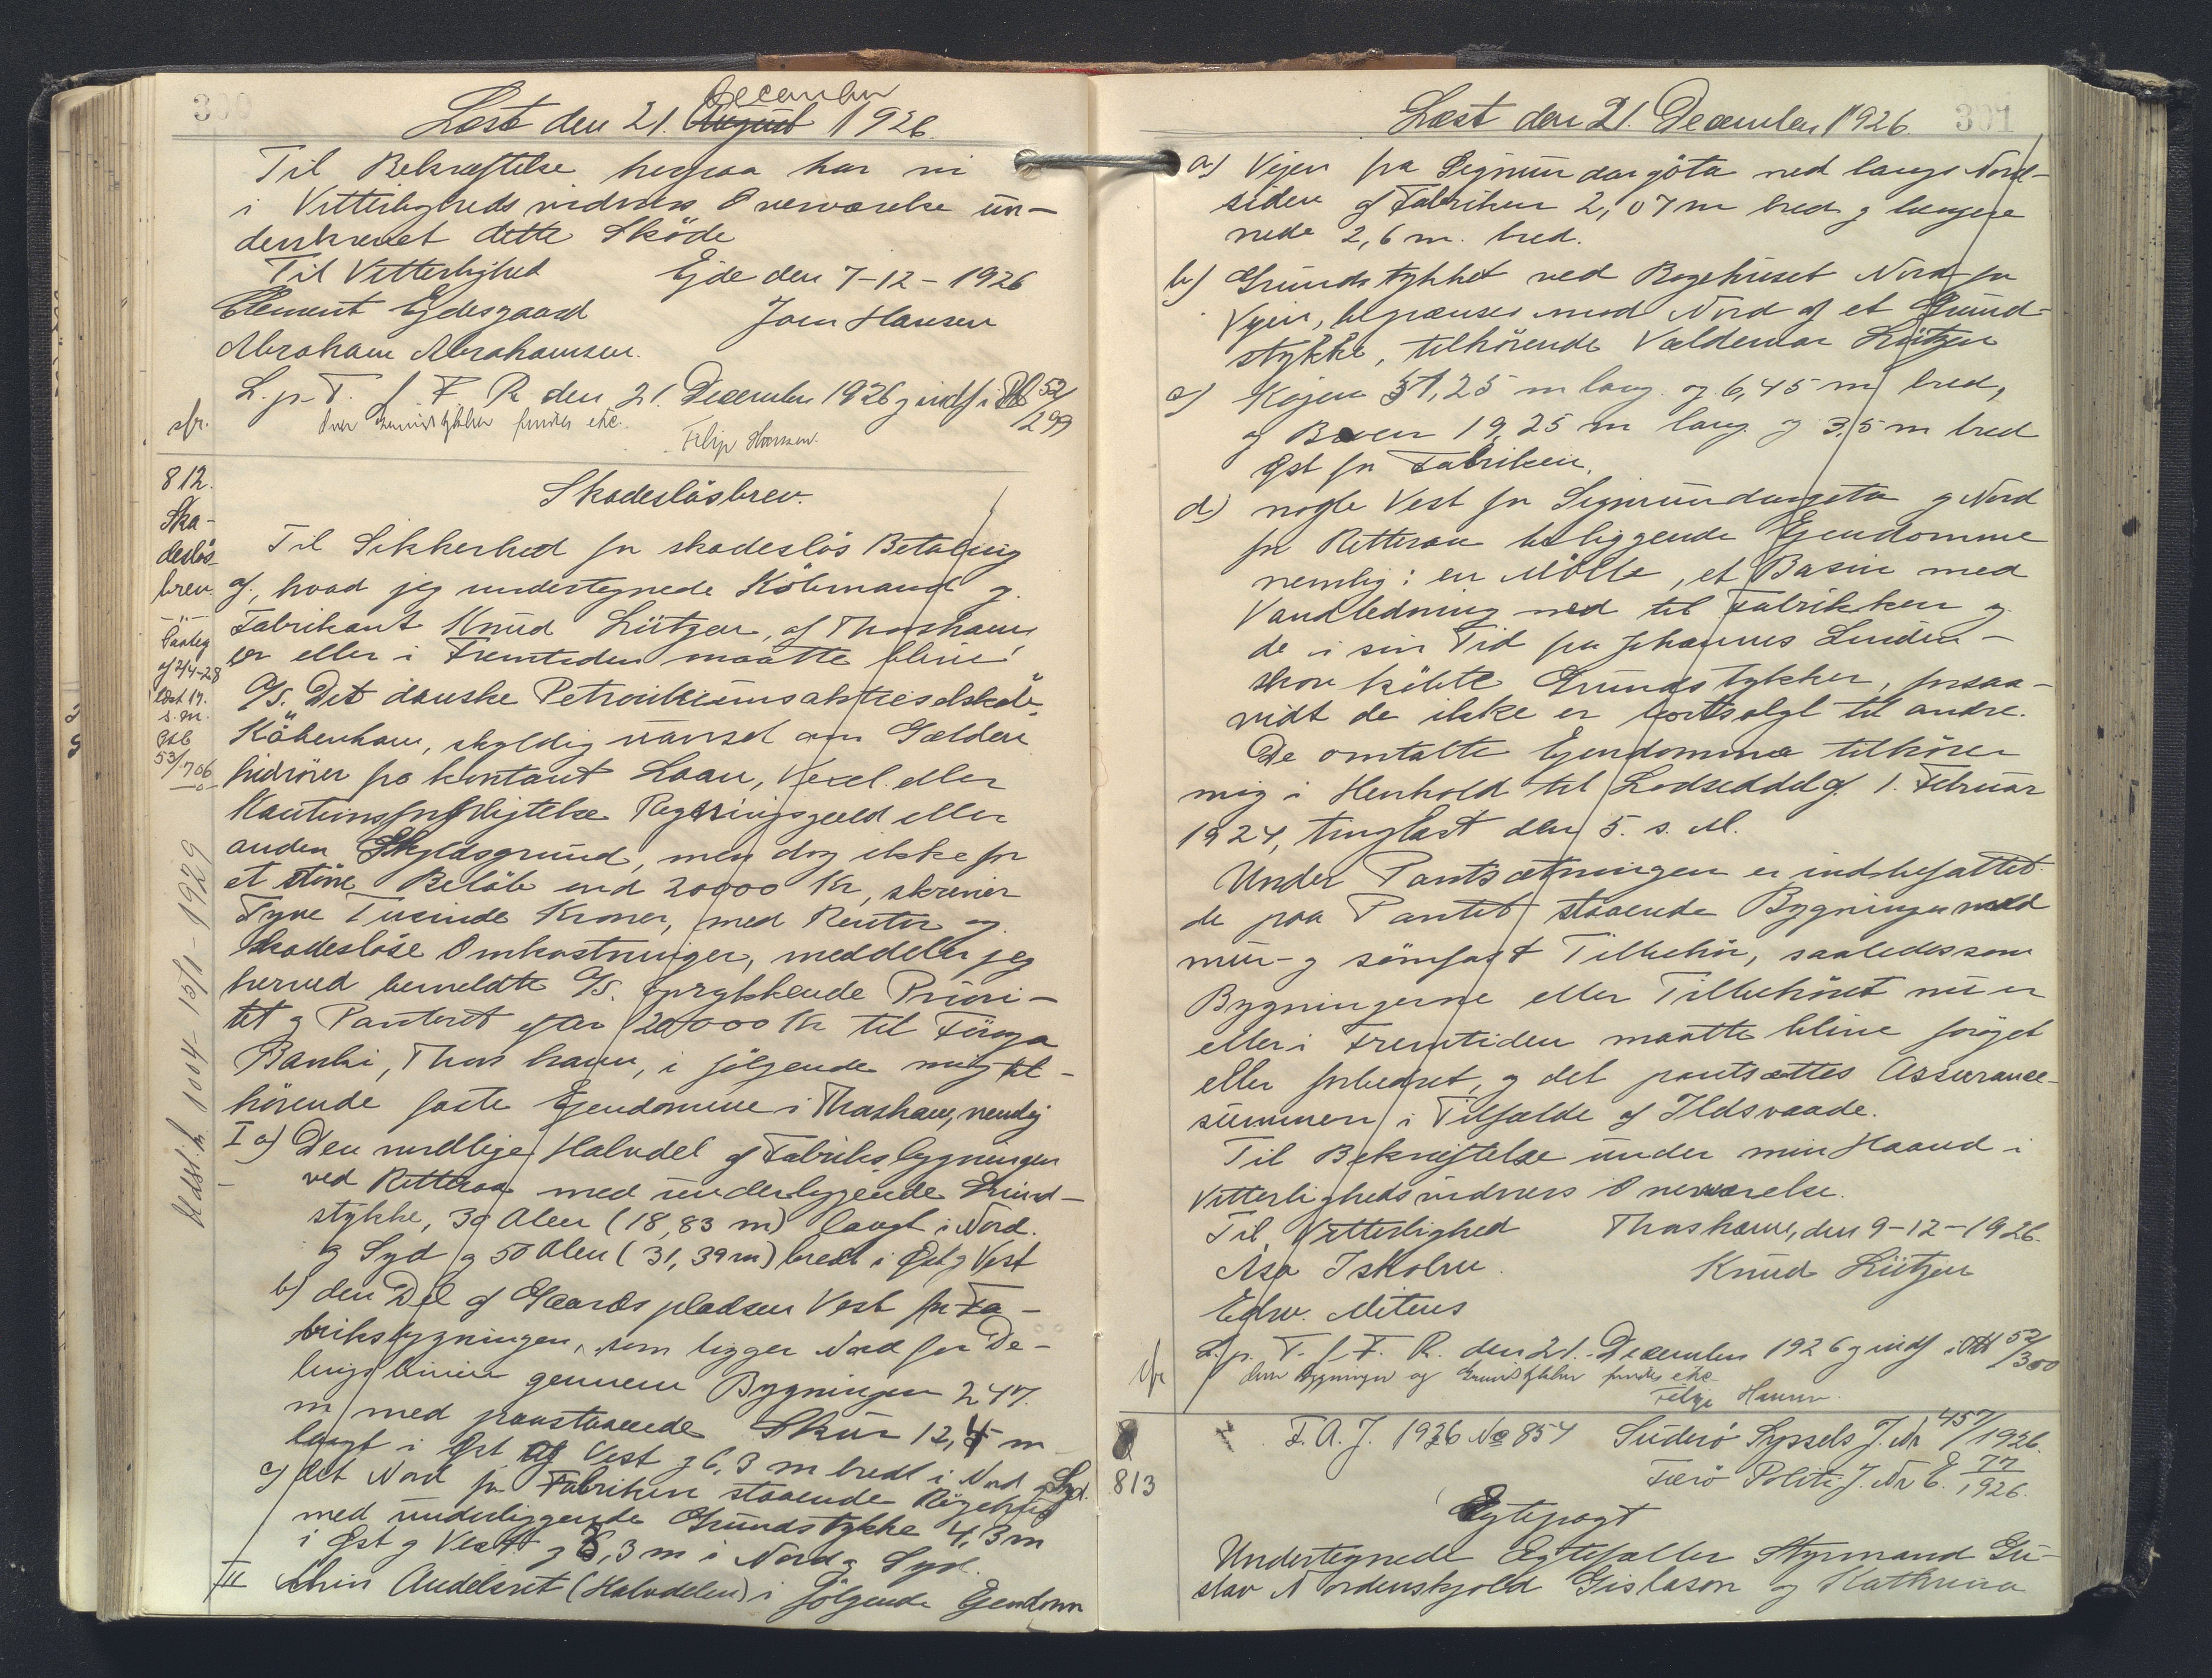 300
Læst den 21. August December 1926.
Til Bekræftelse herpaa har vi
i Vitterlighedsvidners Overværelse ün-
derskrevet dette Sköde
Til Vitterlighed Ejde den 7-12-1926
Clement Ejdesgaard Joen Hansen
Abraham Abrahamsen.
L. p. T. f. F. R. den 21. December 1926 g indf i Pb 52/299
cfr. Over Grundstykker findes ikke.
812. Skadeslösbrev.
Ska-
deslös-
brev.
Paateg
af 2/4-28
læst 17.
s. m.
Ptb
53/706
Udsl. h. 1004 - 15/1-1929
Til Sikkerhed for skadeslös Betaling
af, hvad jeg undertegnede Köbmand g.
Fabrikant Knüd Lützen, af Thorshavn,
er eller i Fremtiden maatte blive
A/S. Det danske Petroleümsaktieselskab,
Köbenhavn, skyldig üanset om Gælden
hidrörer fra kontant Laan, Vexel eller
Kautionsforpligtelse Regningsgæld eller
anden Skyldsgrund, men dog ikke for
et större Belöb end 20000 Kr, skriver
Tyve Tusinde Kroner, med Renter og
skadeslöse Omkostninger, meddeler jeg
herved bemeldte A/S. oprykkende Priori-
tet g Panteret efter 20000 Kr til Föroya
Banki, Thorshavn, i fölgende mig til-
hörende faste Ejendomme i Thorshavn, nemlig
I a) Den nordlige Halvdel af Fabriksbygningen
ved Ritteraa med ünderliggende Grund-
stykke, 30 Alen (18,83 m) langt i Nord.
g Syd g 50 Alen (31,39 m) bredt i Øst g Vest
b) den Del af Gaardspladsen Vest for Fa-
briksbygningen, som ligger Nord for De-
lingslinien gennem Bygningen 247.
m med paastaaende Skür 12,4 m
langt i Øst og Vest g 6,3 m bredt i Nord g Syd.
c) det Nord for Fabriken staaende Rögehüs
med ünderliggende Grundstykke 4,3 m
i Øst g Vest g 6,3 m i Nord g Syd.
II Min Andelsret (Halvdelen) i fölgende Ejendom
301
Læst den 21. December 1926.
a) Vejen fra Sigmündargöta ned langs Nord-
siden af Fabriken 2,07 m bred g længere
nede 2,6 m. bred.
b) Gründstykket ved Rögehüset Nord for
Vejen, begrænses mod Nord af et Gründ-
stykke, tilhörende Valdemar Lützen
c) Kajen 51,25 m lang og 6,45 m bred,
og Broen 19,25 m lang g 3,5 m bred
Øst for Fabriken.
d) nogle Vest for Sigmündargöta g Nord
for Ritteraa beliggende Ejendomme
nemlig: en Mölle, et Basin med
Vandledning ned til Fabrikken g
de i sin Tid fra Johannes Linden-
skov köbte Grundstykker, forsaa-
vidt de ikke er bortsolgt til andre.
De omtalte Ejendomme tilhörer
mig i Henhold til Lodseddel af 1. Februar
1924, tinglæst den 5. s. M.
Under Pantsætningen er indbefattet
de paa Pantet staaende Bygninger med
mür- g sömfast Tilbehör, saaledes som
Bygningerne eller Tilbehöret nü er
eller i Fremtiden maatte blive foröget
eller forbedret, g det pantsættes Assurance-
summen i Tilfælde af Ildsvaade.
Til Bekræftelse ünder min Haand i
Vitterlighedsvidners Overværelse.
Til Vitterlighed Thorshavn, den 9-12-1926.
Asa Iskolm. Knüd Lützen
Edw. Mitens
L. p. T. f. F. R. den 21. December 1926 g indf i Ptb 52/300
cfr Over Bygninger og Grundstykker findes ikke
Filip Hansen.
813 F. A. J. 1926 No 854 Süderö Syssels J. Nr 457/1926.
Færö Politi J. Nr E. 77/1926.
Egtepagt
Undertegnede Egtefæller Styrmand Gü-
stav Nordenskjold Gislason og Kathrina